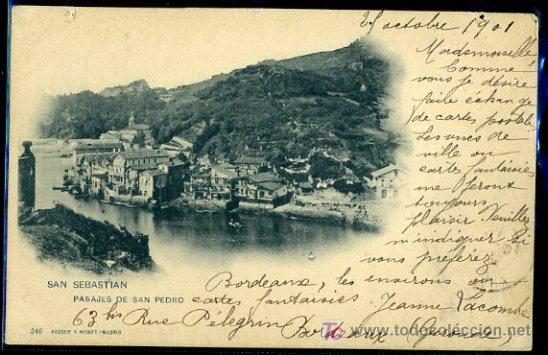 25 octobre 1901
Mademoiselle
Comme
vous je désire
faire échange
de cartes postale
Les vues de
ville ou
cartes fantaisies
me feront
toujours
plaisir. Veuillez
m indiquer si
vous préférez
Bordeaux, les environs ou
cartes fantaisies Jeanne Lacombe
63 bis Rue Pélegrin Bordeaux
SAN SEBASTIAN
PASAJES DE SAN PEDRO
246 HAUSER Y MENET.-MADRID
todocoleccion.net